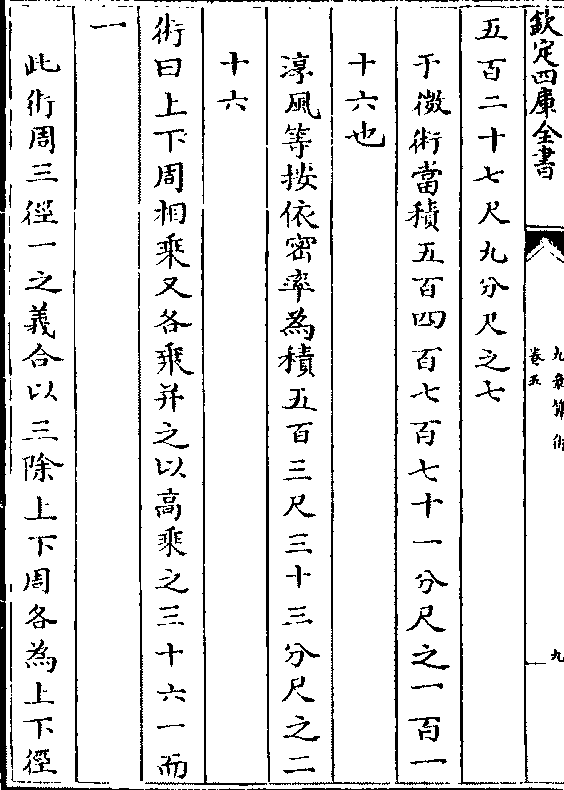 欽定四庫全書
九章算術
卷五
九
五百二十七尺九分尺之七
于徽術當積五百四百七百七十一分尺之一百一
十六也
淳風等按依密率為積五百三尺三十三分尺之二
十六
術曰上下周相乘又各乘并之以高乘之三十六一而
一
此術周三徑一之義合以三除上下周各為上下徑